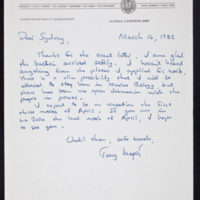 LA JOLLA, CALIFORNIA 92093
March 16, 1982
Dear Sydney,
Thanks for the recent letter. I am glad
the bacteria arrived safely. I haven't heard
anything from the places I applied for work.
There is a possibility that I will be
allowed to stay here in Marine Biology but
there has been no open discussion with the
proper powers.
I expect to be on vacation the first
three weeks of April. If you are in
La Jolla the last week of April, I hope
to see you.
Until then, safe travels
Terry